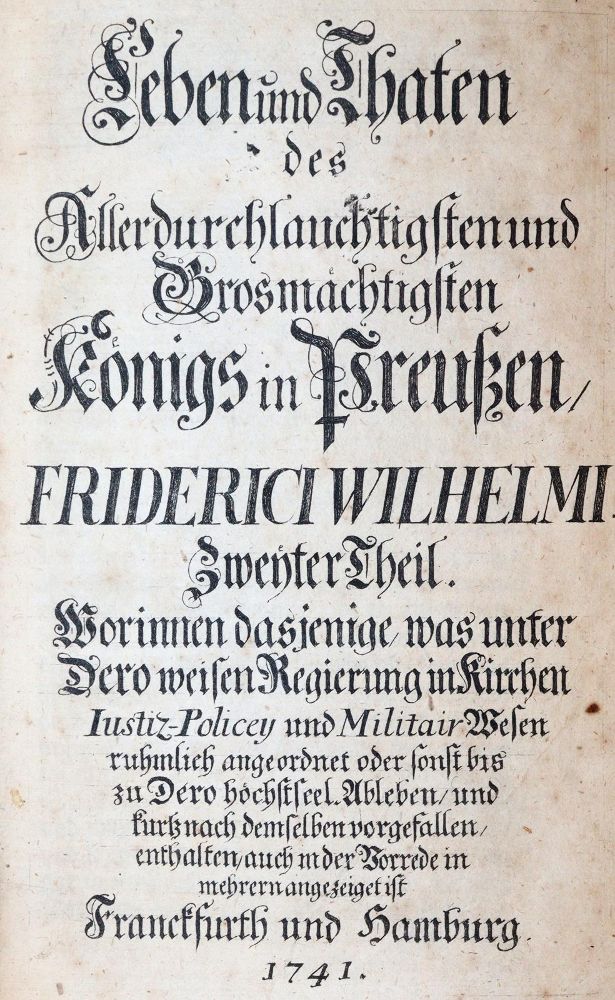 Leben und Thaten
des
Allerdurchlauchtigsten und
Grosmächtigsten
Königs in Preußen/
FRIDERICI WILHELMI.
Zweyter Theil.
Worinnen dasjenige/ was unter
Dero weisen Regierung in Kirchen
Iustiz-Policey und Militair Wesen
ruhmlich angeordnet oder sonst bis
zu Dero höchstseel. Ableben/ und
kurtz nach demselben vorgefallen/
enthalten/ auch in der Vorrede in
mehrern angezeiget ist
Franckfurth und Hamburg.
1741.